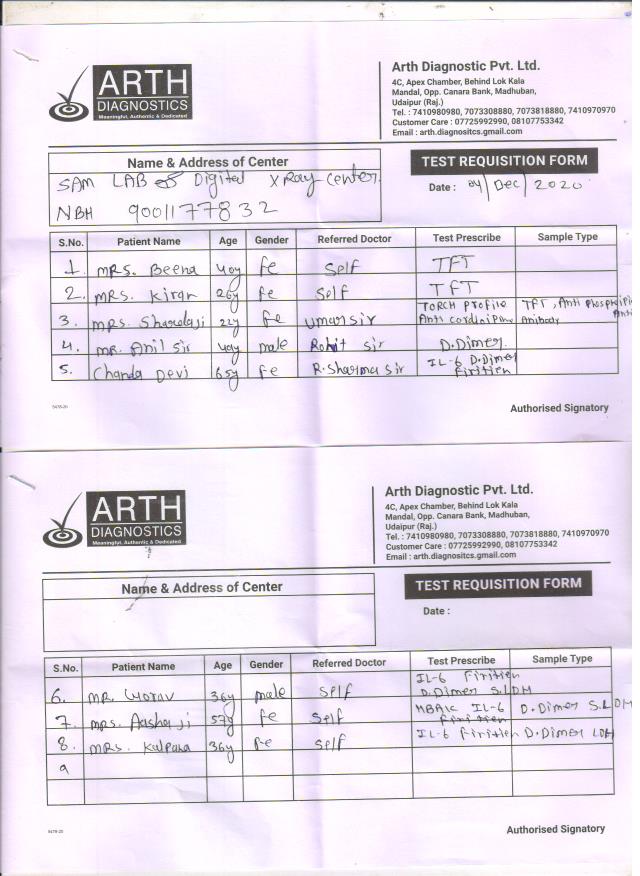 ARTH
DIAGNOSTICS
Meaningful, Authentic & Dedicated
Arth Diagnostic Pvt. Ltd.
4C, Apex Chamber, Behind Lok Kala
Mandal, Opp. Canara Bank, Madhuban,
Udaipur (Raj.)
Tel. : 7410980980, 7073308880, 7073818880, 7410970970
Customer Care : 07725992990, 08107753342
Email : arth.diagnositcs.gmail.com
Name & Address of Center
SAM LAB Digital X Ray Center.
NBH 9001177832
TEST REQUISITION FORM
Date : 04/Dec/2020
S.No. Patient Name Age Gender Referred Doctor Test Prescribe Sample Type
1. MRS. Beena 40y fe Self TFT
2. MRS. Kiran 26y fe Self TFT
3. MRS. Shardaji 22y fe Umar sir TORCH Profile TFT, Anti Phospholipin
Anti cordinipine Anibody Anti
4. MR. Anil Sir 40y male Rohit Sir D.Dimer
5. Chanda Devi 65y fe R. Sharma Sir IL-6 D.Dimer
firitien
5478-20
Authorised Signatory
ARTH
DIAGNOSTICS
Meaningful, Authentic & Dedicated
Arth Diagnostic Pvt. Ltd.
4C, Apex Chamber, Behind Lok Kala
Mandal, Opp. Canara Bank, Madhuban,
Udaipur (Raj.)
Tel. : 7410980980, 7073308880, 7073818880, 7410970970
Customer Care : 07725992990, 08107753342
Email : arth.diagnositcs.gmail.com
Name & Address of Center
TEST REQUISITION FORM
Date :
S.No. Patient Name Age Gender Referred Doctor Test Prescribe Sample Type
IL-6 Firitien
6. MR. 36y male Self D.Dimer S.LDH
7. MRS. Aasha ji 57y fe Self HBA1C IL-6 D.Dimer S.LDH
firitien
8. MRS. Kalpana 36y fe Self IL-6 firitien D.Dimer LDH
9
5478-20
Authorised Signatory